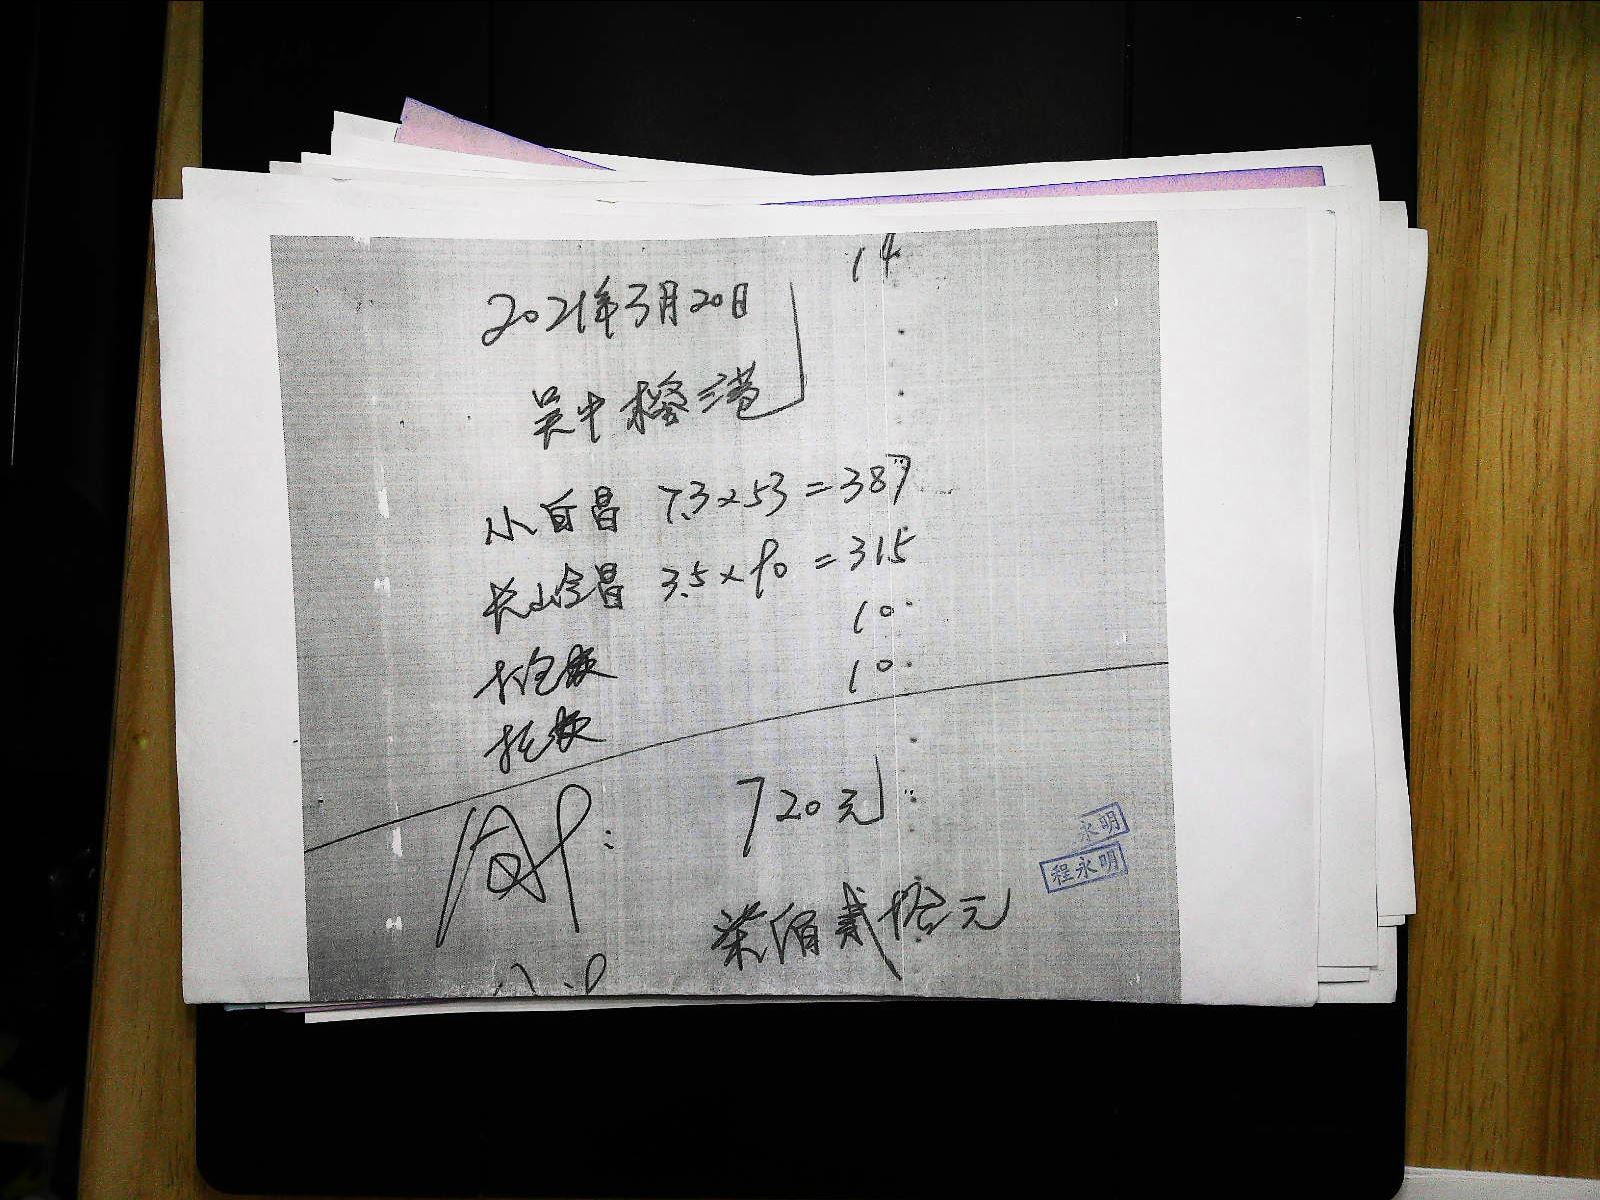 14
2021年3月20日
吴中横港
小白昌 7.3×53=387
长山全昌 3.5×90=315
10
10
720元
柒佰贰拾元
永明
程永明